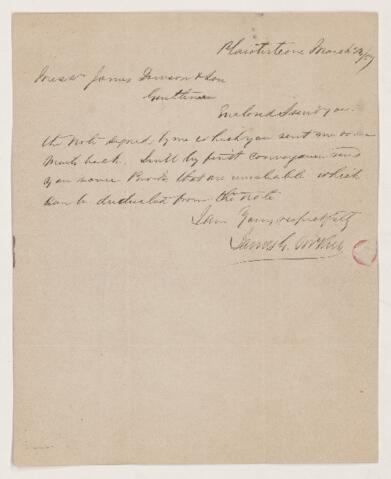 March
Messrs James Dawson & Son
Gentlemen
Enclosed I send you
the Note signed by me which you sent me some
week back. I will by first conveyance send
you some Books that are unsaleable which
can be deducted from the note
I am Yours respectfully
James G.